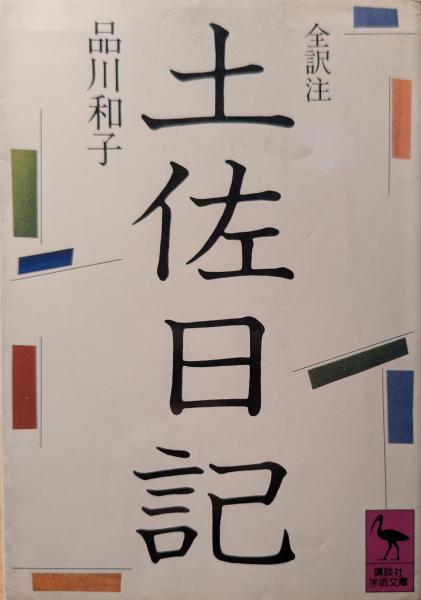 全訳注
土佐日記
品川和子
講談社
学術文庫